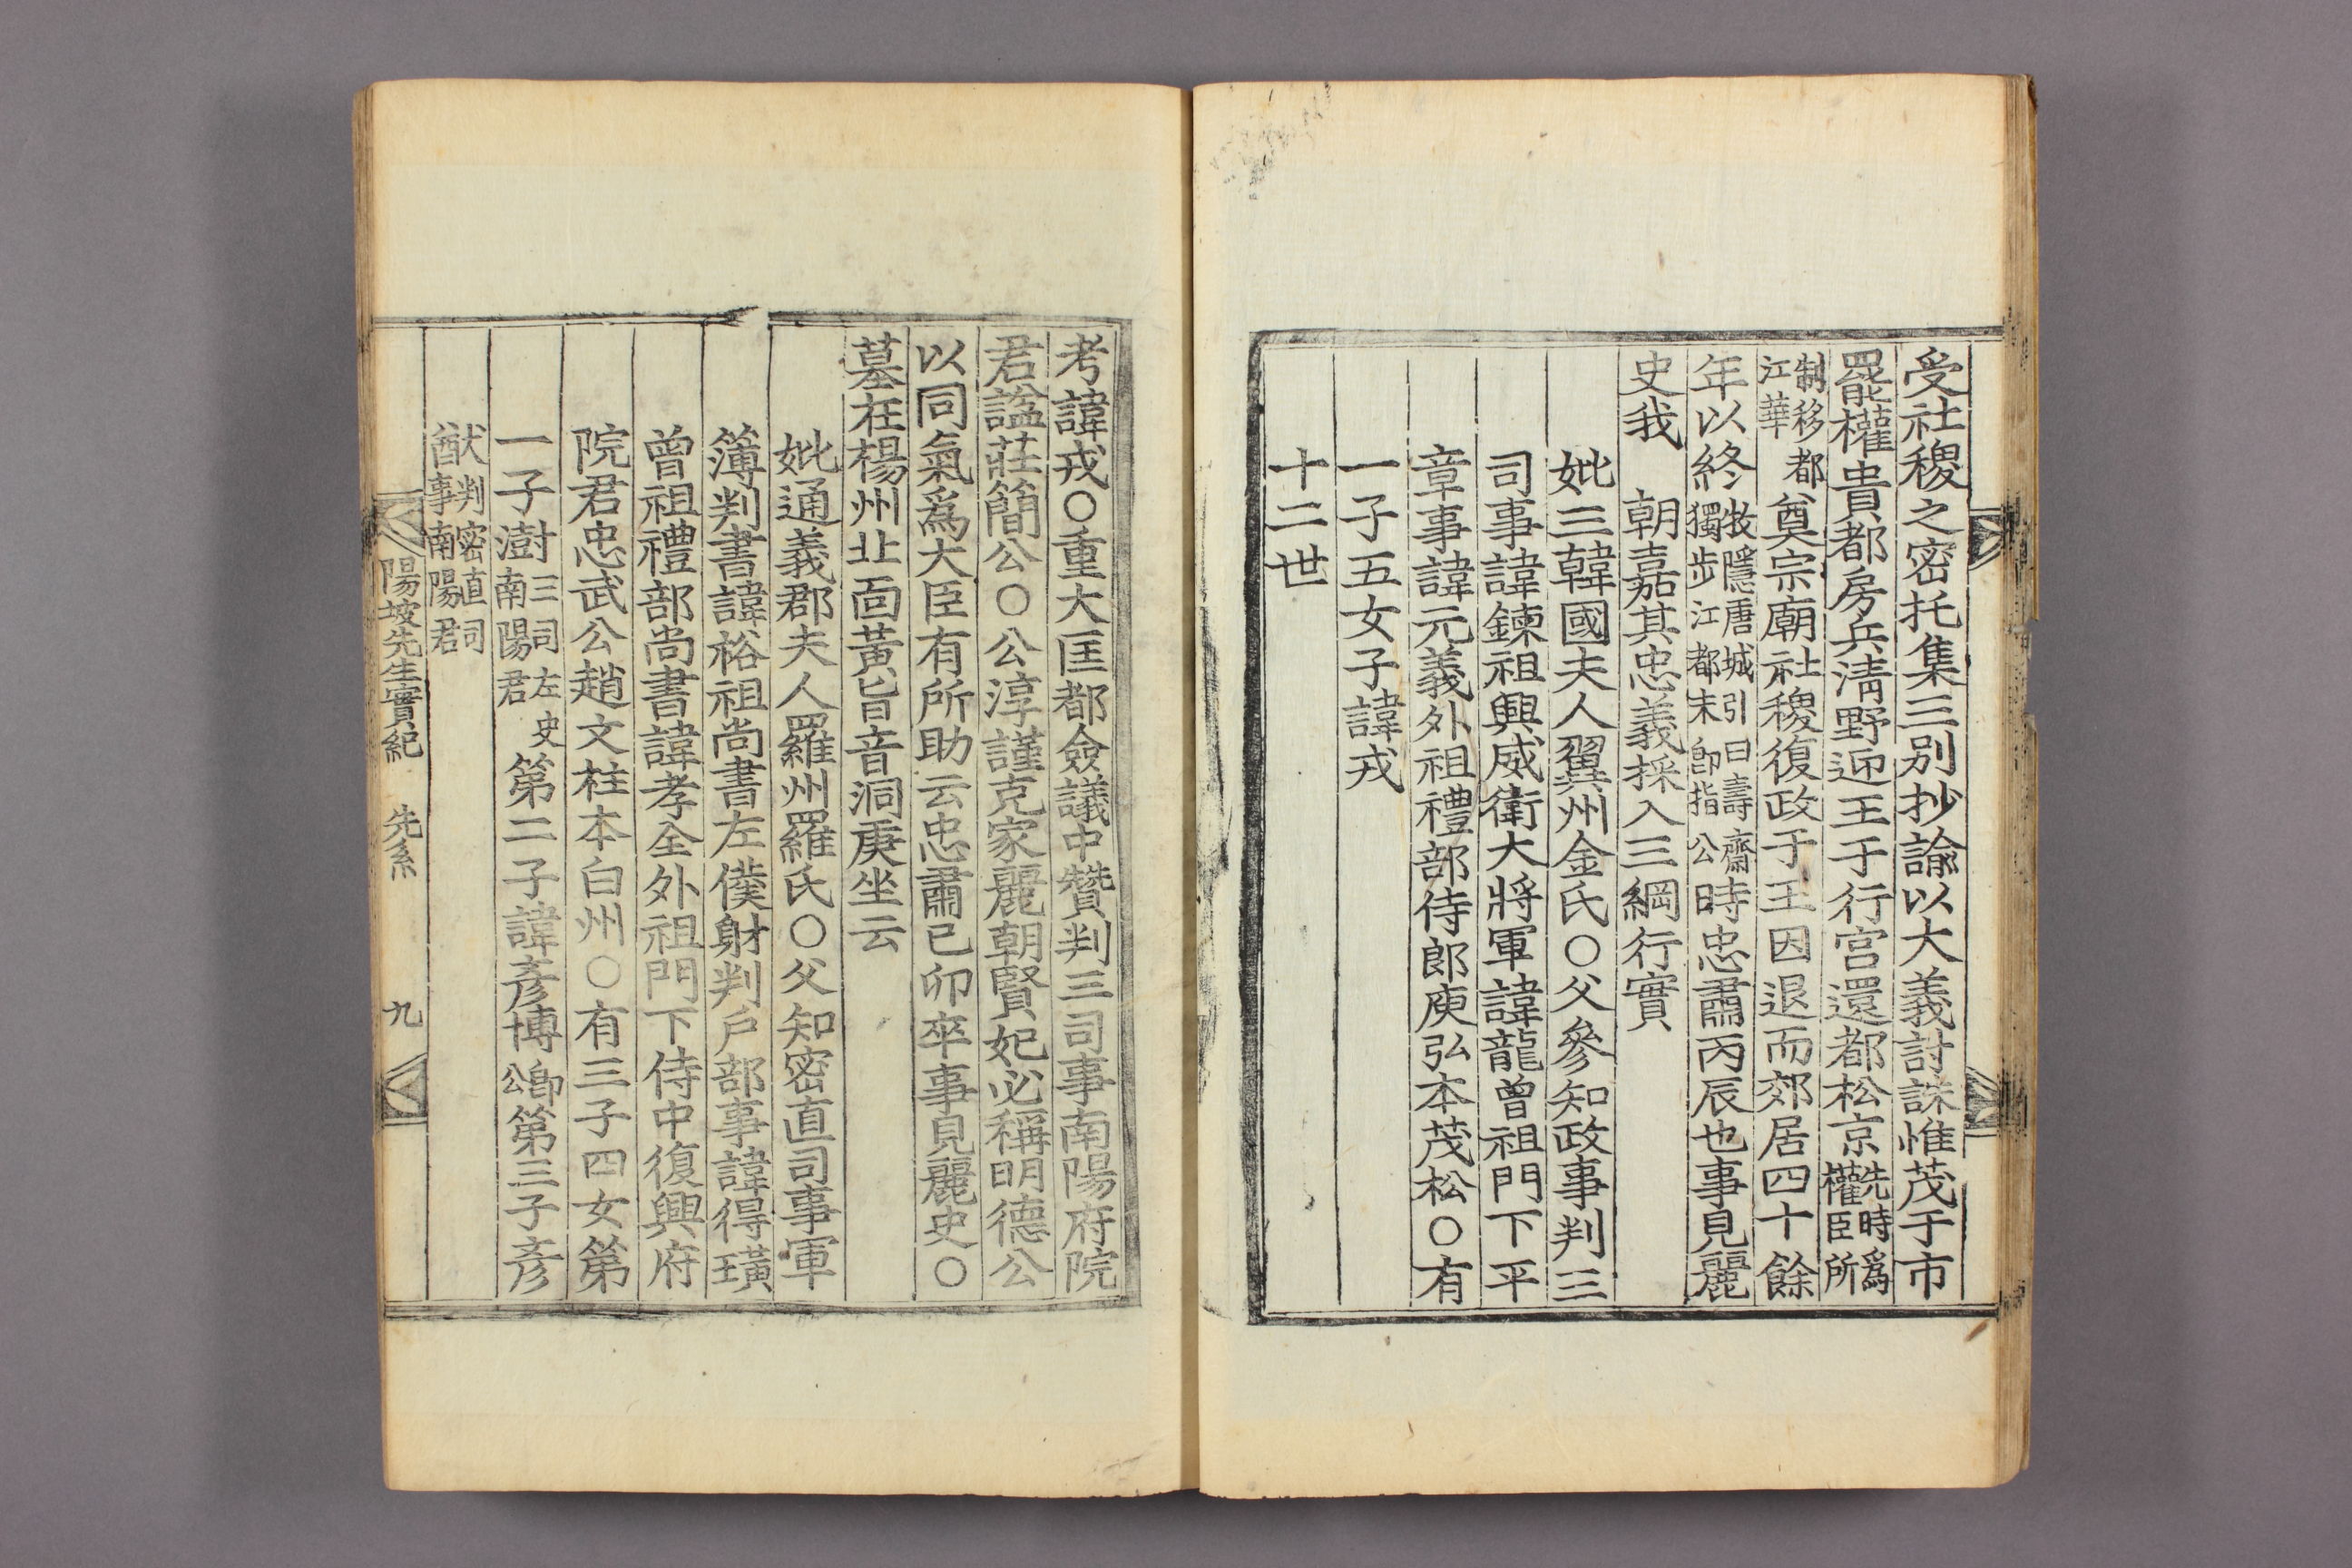 受社稷之密托集三別抄諭以大義討誅惟茂于市
罷權貴都房兵淸野迎王于行宮還都松京先時爲權臣所
制移都江華奠宗廟社稷復政于王因退而郊居四十餘
年以終牧隱唐城引曰壽齋獨步江都末卽指公時忠肅丙辰也事見麗
史我 朝嘉其忠義採入三綱行實
妣三韓國夫人翼州金氏○父參知政事判三
司事諱鍊祖興威衛大將軍諱龍曾祖門下平
章事諱元義外祖禮部侍郎庾弘本茂松○有
一子五女子諱戎
十二世
考諱戎○重大匡都僉議中贊判三司事南陽府院
君諡莊簡公○公淳謹克家麗朝賢妃必稱明德公
以同氣爲大臣有所助云忠肅己卯卒事見麗史○
墓在楊州北面黃旨音洞庚坐云
妣通義郡夫人羅州羅氏○父知密直司事軍
簿判書諱裕祖尚書左僕射判戶部事諱得璜
曾祖禮部尚書諱孝全外祖門下侍中復興府
院君忠武公趙文柱本白州○有三子四女第
一子澍三司左史南陽君第二子諱彥博卽公第三子彥
猷判密直司事南陽君
陽坡先生實紀 先系 九